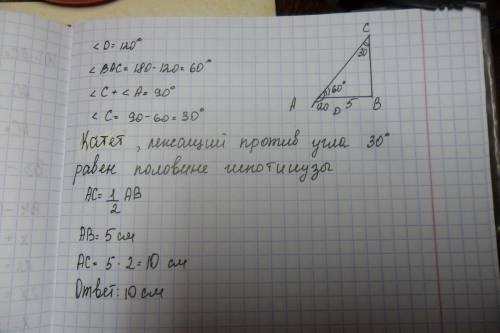 ∠D=120°
∠BAC=180-120=60°
∠C+∠A=90°
∠C=90-60=30°
Катет, лежащий против угла 30°
равен половине гипотинузы
AC=1/2 AB
AB=5 см
AC=5·2=10 см
Ответ: 10 см
C
30°
60°
A
120
D
5
B